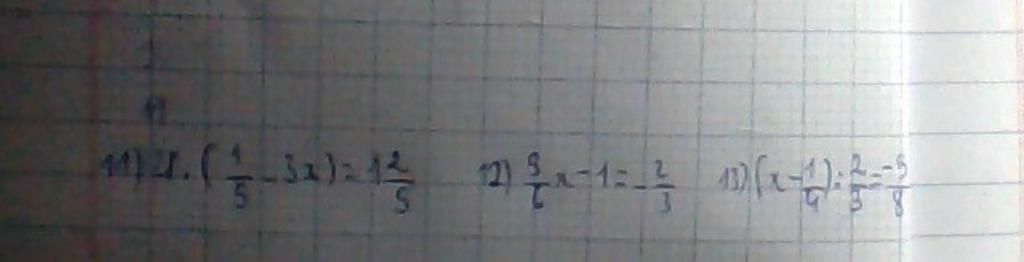 11) 21 · (1/5 - 3x) = 1 2/5 12) 5/6 x - 1 = - 2/3 13) (x - 1/4) : 2/5 = -5/8